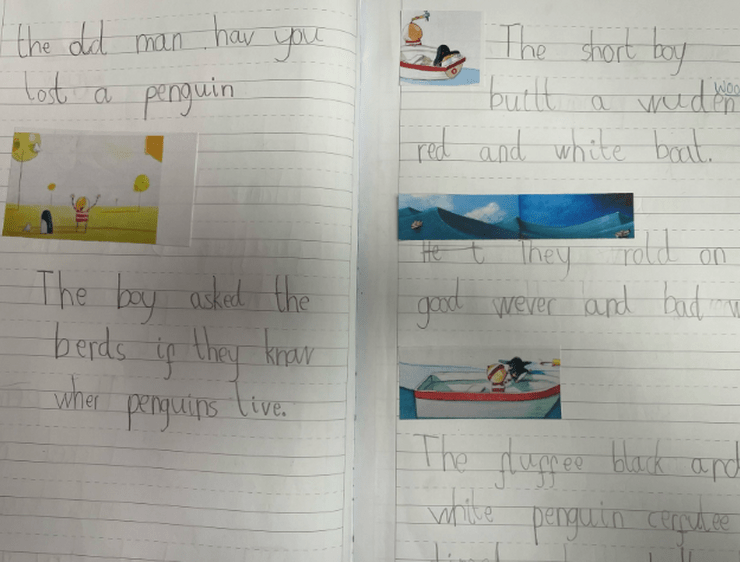 the old man hav you
lost a penguin
The boy asked the
berds if they knaw
wher penguins live.
The short boy
built a wuden
red and white boat.
He t They rold on
good wever and bad w
The fluffee black and
white penguin cerfulee